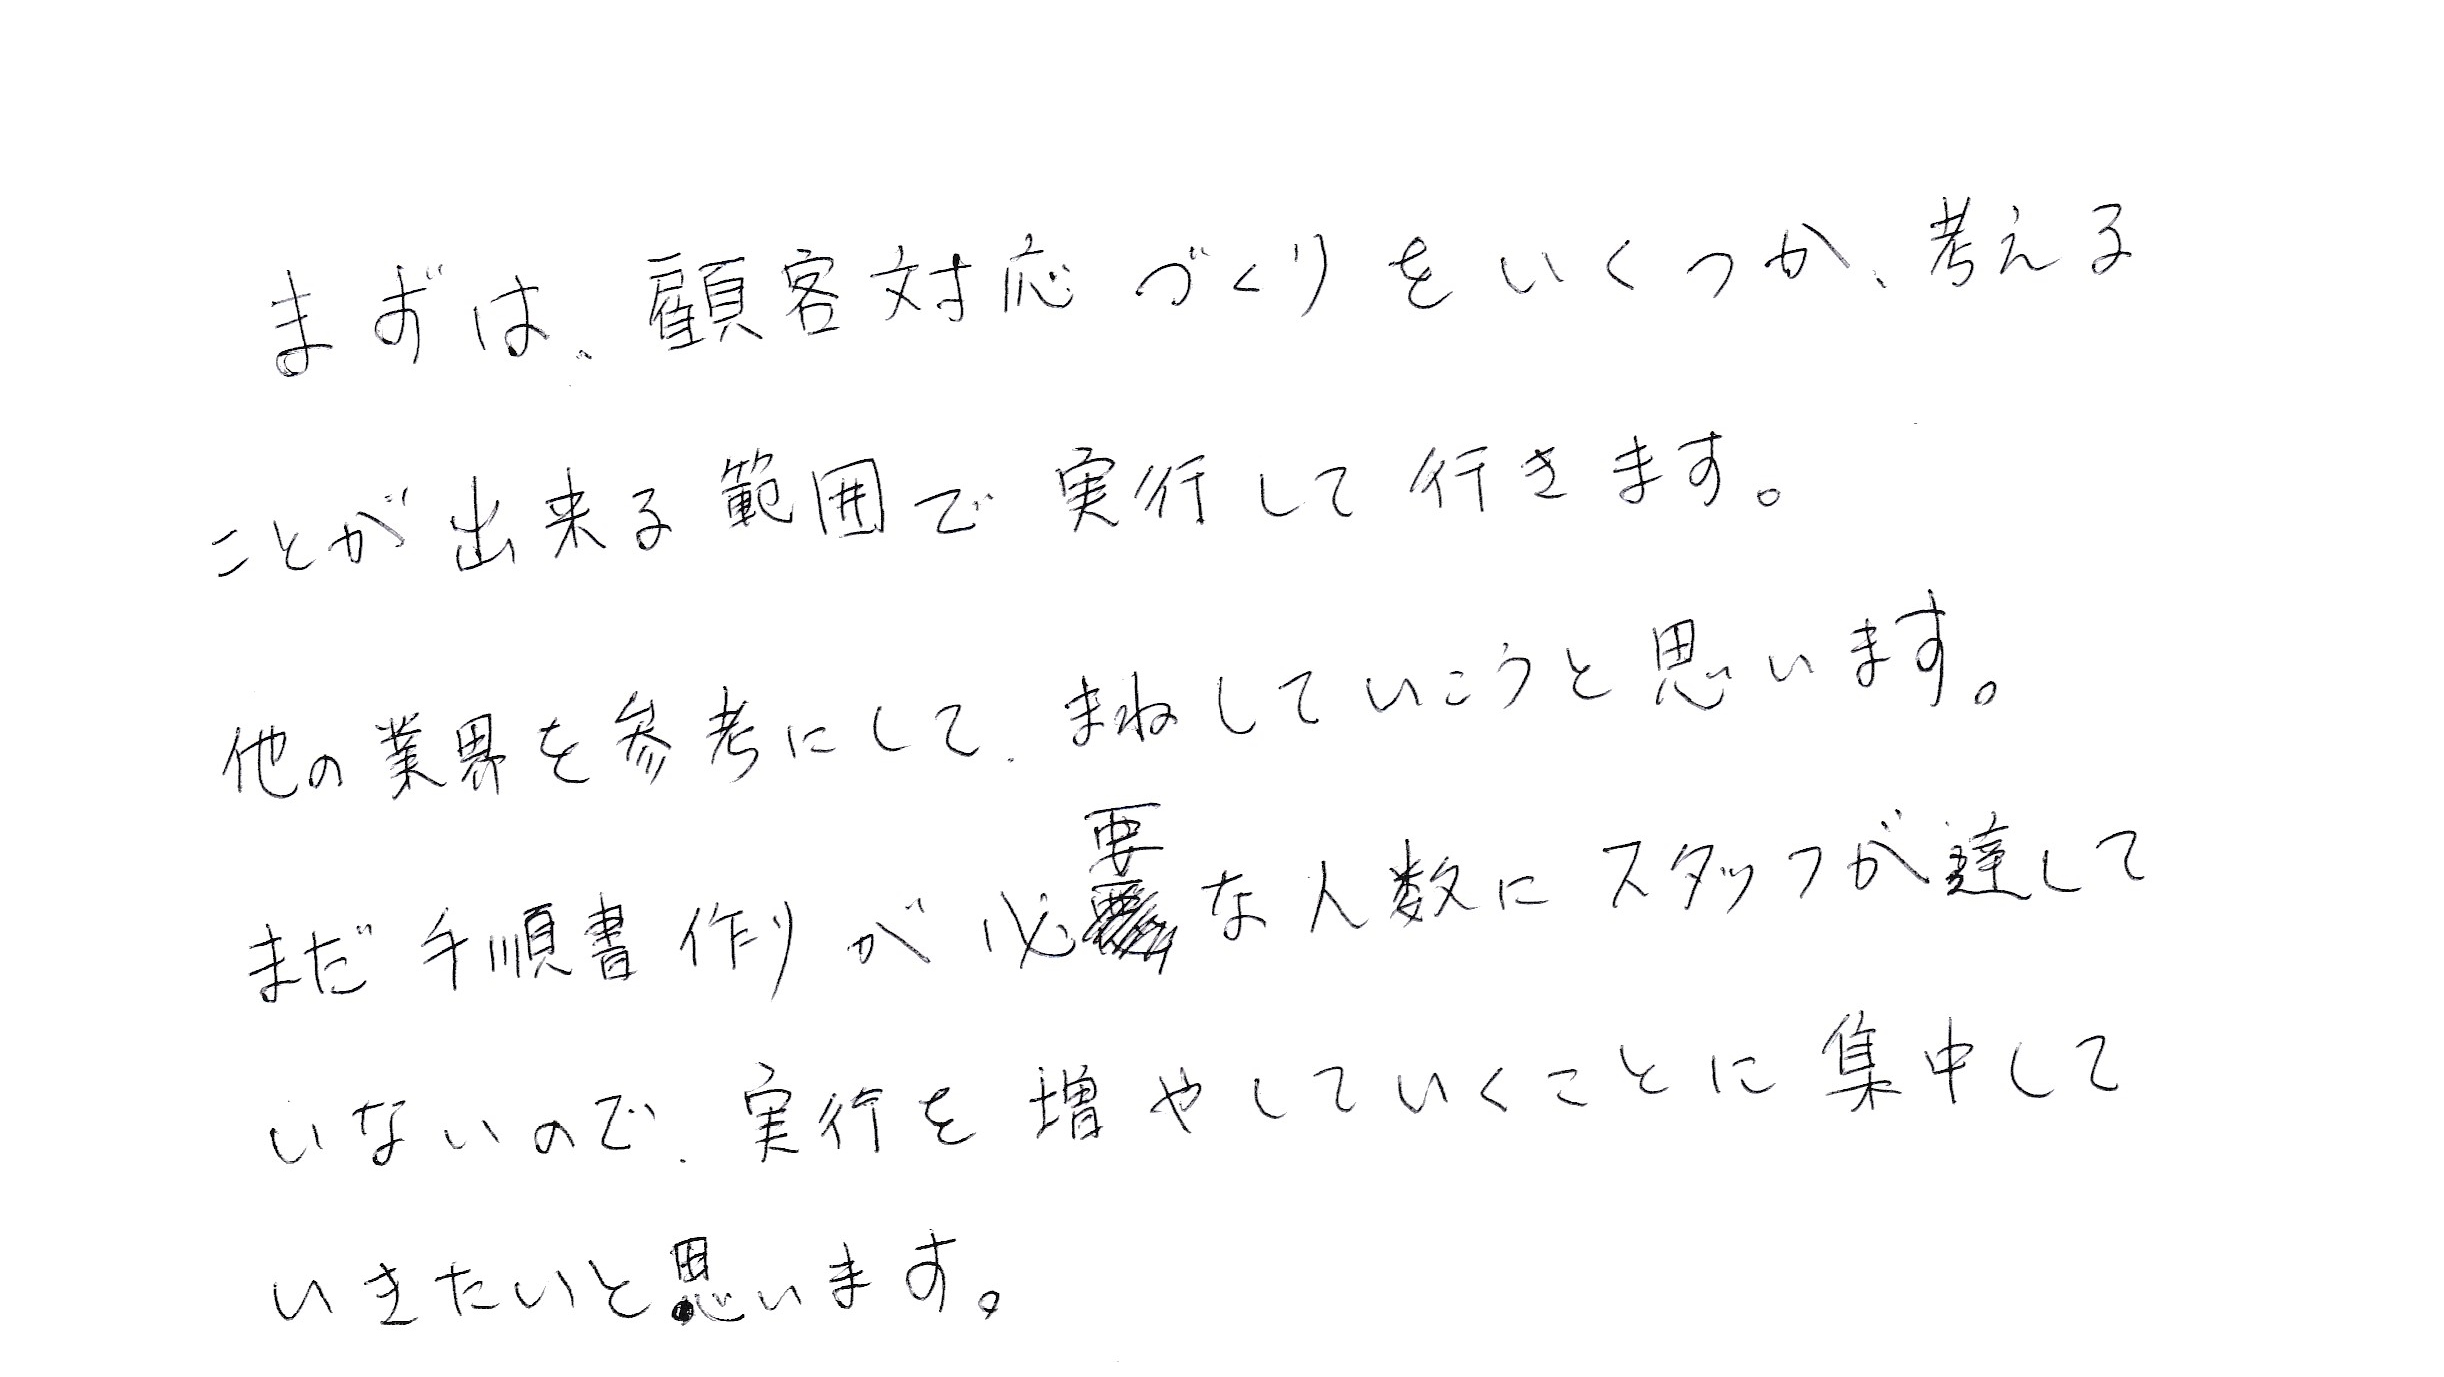 まずは、顧客対応づくりをいくつか、考える
ことが出来る範囲で実行して行きます。
他の業界を参考にして、まねしていこうと思います。
まだ手順書作りが必要な人数にスタッフが達して
いないので、実行を増やしていくことに集中して
いきたいと思います。